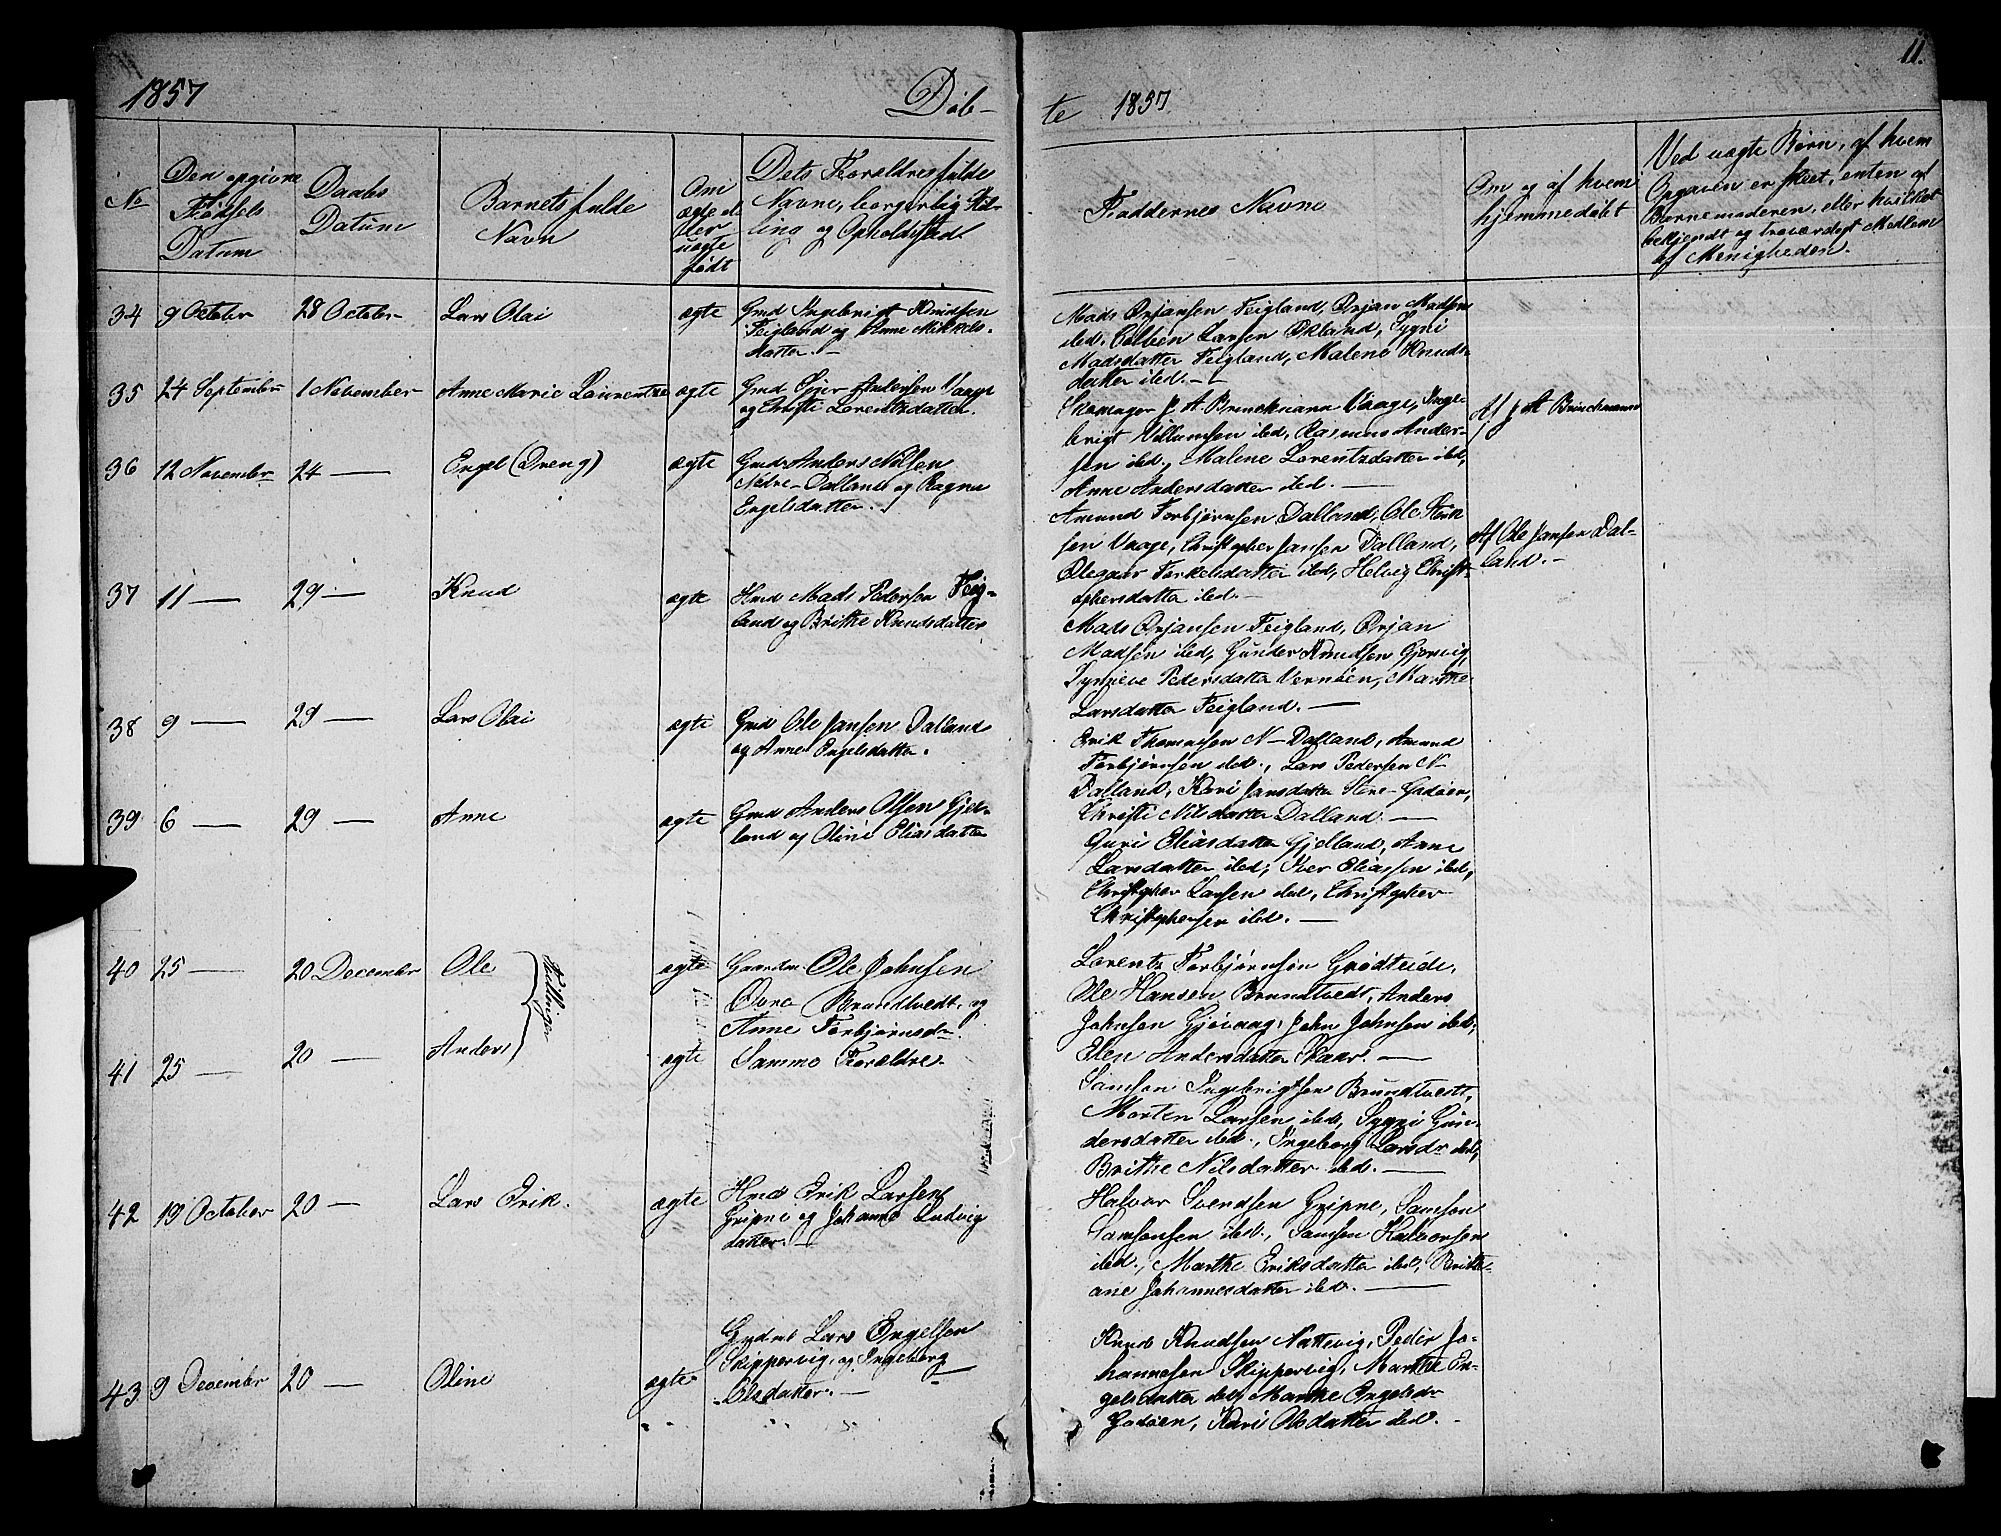 11.
1857 Døb-
te 1857.
No
Den opgivne
Fødsels
Datum
Daabs
Datum
Barnets fulde
Navn
Om
ægte el
ler
uægte
født
Dets Forældres fulde
Navne, borgerlig Stil-
ling og Opholdssted
Faddernes Navne
Om og af hvem
hjemmedøbt
Ved uægte Børn, af hvem
Opgaven er skeet, enten af
Barnemoderen, eller hvilket
bekjendt og troværdigt Medlem
af Menigheden.
34 9 October 28 October Lars Olai ægte Gmd Ingebrigt Knudsen
Feigland og Anne Mikkels-
datter. -
Mads Ørjansen Feigland, Ørjan Madsen
ibd, Colben Larsen Økland, Sygni
Madsdatter Feigland, Malene Knuds-
datter ibd. -
35 24 September 1 November Anne Marie Laurentze ægte Gmd Siger Andersen Vaage
og Christi Lorentzdatter.
Skomager J A Brinckmann Vaage, Inge-
brigt Villumsen ibd, Rasmus Ander-
sen ibd., Malene Lorentzdatter ibd,
Anne Andersdatter ibd. -
Af J A Brinckmann
36 12 November 24 - Engel (Dreng) ægte Gmd Anders Nilsen
Nedre-Dalland og Ragna
Engelsdatter.
Amund Torbjørnsen Dalland, Ole Steen
sen Vaage, Christopher Jansen Dalland,
Olegaar Torkelsdatter ibd, Helvig Christ-
ophersdatter ibd. -
Af Ole Jansen Dal-
land. -
37 11 - 29 - Knud ægte Hmd Mads Pedersen Feig-
land og Brithe Knudsdatter
Mads Ørjansen Feigland, Ørjan
Madsen ibd, Gunder Knudsen Gjervig,
Synneve Pedersdatter Vernøen, Marthe
Larsdatter Feigland. -
38 9 - 29 - Lars Olai ægte Gmd Ole Jansen Dalland
og Anne Engelsdatter.
Erik Thomassen N-Dalland, Amund
Torbjørnsen ibd., Lars Pedersen N-
Dalland, Kari Jansdatter Store-Godøen,
Christi Nilsdatter Dalland. -
39 6 - 29 - Anne ægte Gmd Anders Olsen Gjel-
land og Oline Eliasdatter
Guri Eliasdatter Gjelland, Anne
Larsdatter ibd, Iver Eliassen ibd,
Christopher Larsen ibd, Christopher
Christophersen ibd. -
40 25 - 20 December Ole ægte Gaardm Ole Johnsen
Øvre Brandtvedt og
Anne Torbjørnsdr
Tvillinger
Lorentz Torbjørnsen Grødteide,
Ole Hansen Brundtvedt, Anders
Johnsen Gjøvaag, John Johnsen ibd,
Elen Andersdatter Skaar. -
41 25 - 20 - Anders ægte Samme Forældre.
Samson Ingebrigtsen Brundtvedt,
Morten Larsen ibd, Sygni Gun-
dersdatter ibd., Ingeborg Larsdr ibd,
Brithe Nilsdatter ibd. -
42 19 October 20 - Lars Erik. ægte Hmd Erik Larsen
Gripne og Johanne Ludvig
datter. -
Halvor Svendsen Gripne, Samson
Samsonsen ibd., Samson Halvorsen
ibd., Marthe Eriksdatter ibd, Britte-
ane Johannesdatter ibd. -
43 9 December 20 - Oline ægte Lars Engelsen
Skippervig, og Ingeborg
Olsdatter. -
Knud Knudsen Nattevig, Peder Jo-
hannesen Skippervig, Marthe En-
gelsdatter ibd, Marthe Engelsdr
Godøen, Kari Olsdatter ibd. -